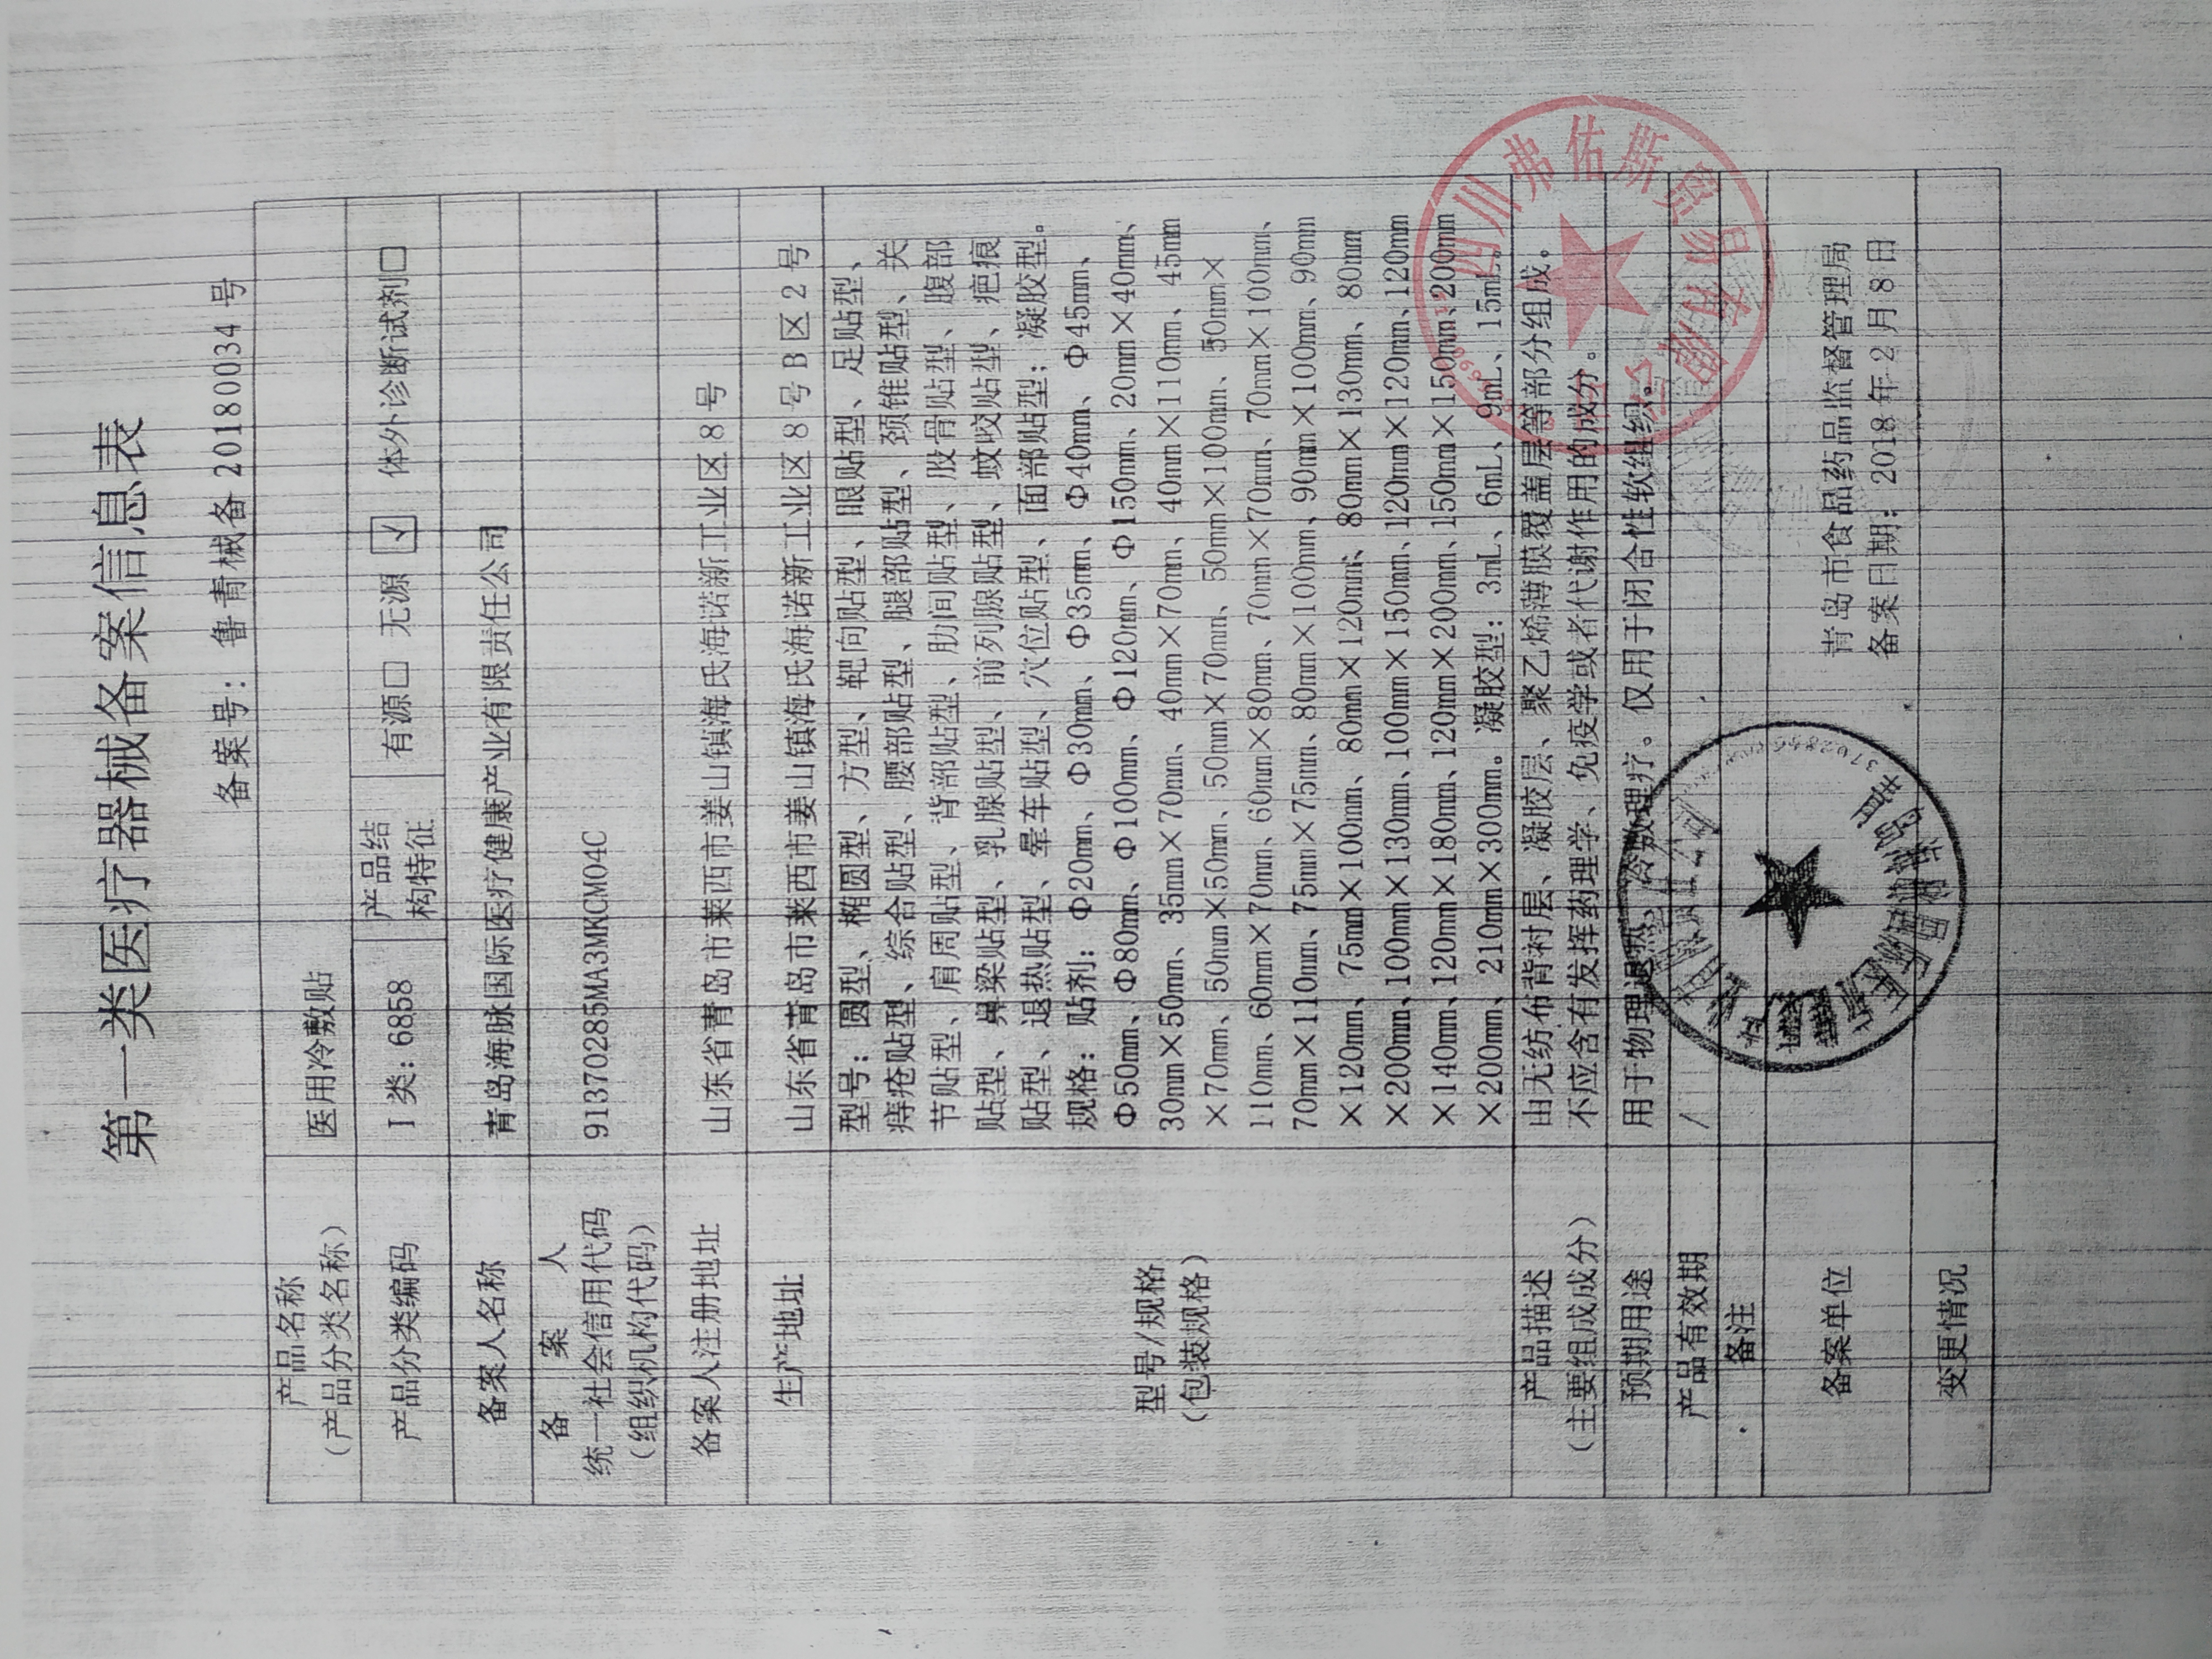 第一类医疗器械备案信息表
备案号：鲁青械备20180034号
产品名称
（产品分类名称）
医用冷敷贴
产品分类编码
I 类：6858
产品结
构特征
有源□ 无源 ☑ 体外诊断试剂□
备案人名称
青岛海脉国际医疗健康产业有限责任公司
备 案 人
统一社会信用代码
（组织机构代码）
91370285MA3MKCMO4C
备案人注册地址
山东省青岛市莱西市姜山镇海氏海诺新工业区8号
生产地址
山东省青岛市莱西市姜山镇海氏海诺新工业区8号B区2号
型号/规格
（包装规格）
型号：圆型、椭圆型、方型、靶向贴型、眼贴型、足贴型、
痔疮贴型、综合贴型、腰部贴型、腿部贴型、颈锥贴型、关
节贴型、肩周贴型、背部贴型、肋间贴型、股骨贴型、腹部
贴型、鼻梁贴型、乳腺贴型、前列腺贴型、蚊咬贴型、疤痕
贴型、退热贴型、晕车贴型、穴位贴型、面部贴型；凝胶型。
规格：贴剂：Φ20mm、Φ30mm、Φ35mm、Φ40mm、Φ45mm、
Φ50mm、Φ80mm、Φ100mm、Φ120mm、Φ150mm、20mm×40mm、
30mm×50mm、35mm×70mm、40mm×70mm、40mm×110mm、45mm
×70mm、50mm×50mm、50mm×70mm、50mm×100mm、50mm×
110mm、60mm×70mm、60mm×80mm、70mm×70mm、70mm×100mm、
70mm×110mm、75mm×75mm、80mm×100mm、90mm×100mm、90mm
×120mm、75mm×100mm、80mm×120mm、80mm×130mm、80mm
×200mm、100mm×130mm、100mm×150mm、120mm×120mm、120mm
×140mm、120mm×180mm、120mm×200mm、150mm×150mm、200mm
×200mm、210mm×300mm。凝胶型：3mL、6mL、9mL、15mL。
产品描述
（主要组成成分）
由无纺布背衬层、凝胶层、聚乙烯薄膜覆盖层等部分组成。
不应含有发挥药理学、免疫学或者代谢作用的成分。
预期用途
用于物理退热、冷敷理疗。仅用于闭合性软组织。
产品有效期
/
备注
备案单位
青岛市食品药品监督管理局
备案日期：2018年2月8日
变更情况
四川弗佑斯贸易有限公司